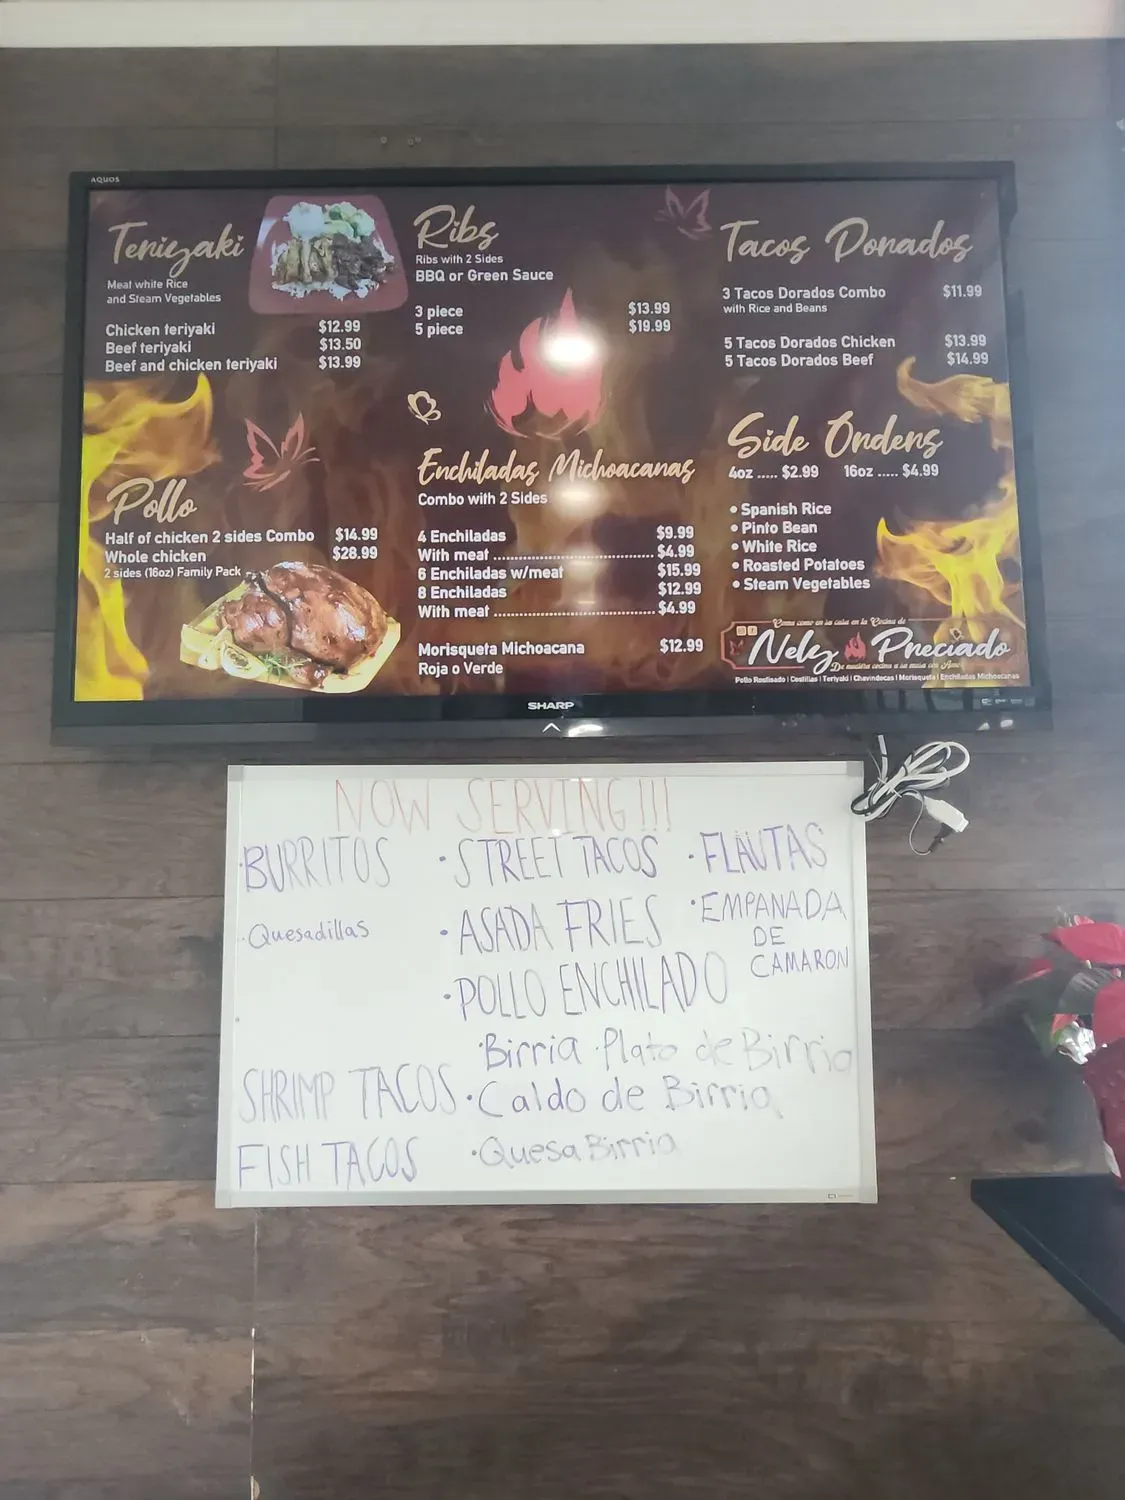 AQUOS
Teriyaki
Meat white Rice
and Steam Vegetables
Chicken teriyaki $12.99
Beef teriyaki $13.50
Beef and chicken teriyaki $13.99
Pollo
Half of chicken 2 sides Combo $14.99
Whole chicken $28.99
2 sides (16oz) Family Pack
Ribs
Ribs with 2 Sides
BBQ or Green Sauce
3 piece $13.99
5 piece $19.99
Enchiladas Michoacanas
Combo with 2 Sides
4 Enchiladas $9.99
With meat ........................................ $4.99
6 Enchiladas w/meat $15.99
8 Enchiladas $12.99
With meat ......................................... $4.99
Morisqueta Michoacana $12.99
Roja o Verde
Tacos Dorados
3 Tacos Dorados Combo $11.99
with Rice and Beans
5 Tacos Dorados Chicken $13.99
5 Tacos Dorados Beef $14.99
Side Orders
4oz ..... $2.99 16oz ..... $4.99
• Spanish Rice
• Pinto Bean
• White Rice
• Roasted Potatoes
• Steam Vegetables
Como como en su casa en la Cocina de
Nelez Preciado
De nuestra cocina a su mesa con Amor
Pollo Rostisado | Costillas | Teriyaki | Chavindecas | Morisqueta | Enchiladas Michoacanas
SHARP
NOW SERVING!!!
·BURRITOS
·Quesadillas
SHRIMP TACOS
FISH TACOS
·STREET TACOS
·ASADA FRIES
·POLLO ENCHILADO
·Birria ·Plato de Birria
·Caldo de Birria
·QuesaBirria
·FLAUTAS
·EMPANADA
DE
CAMARON